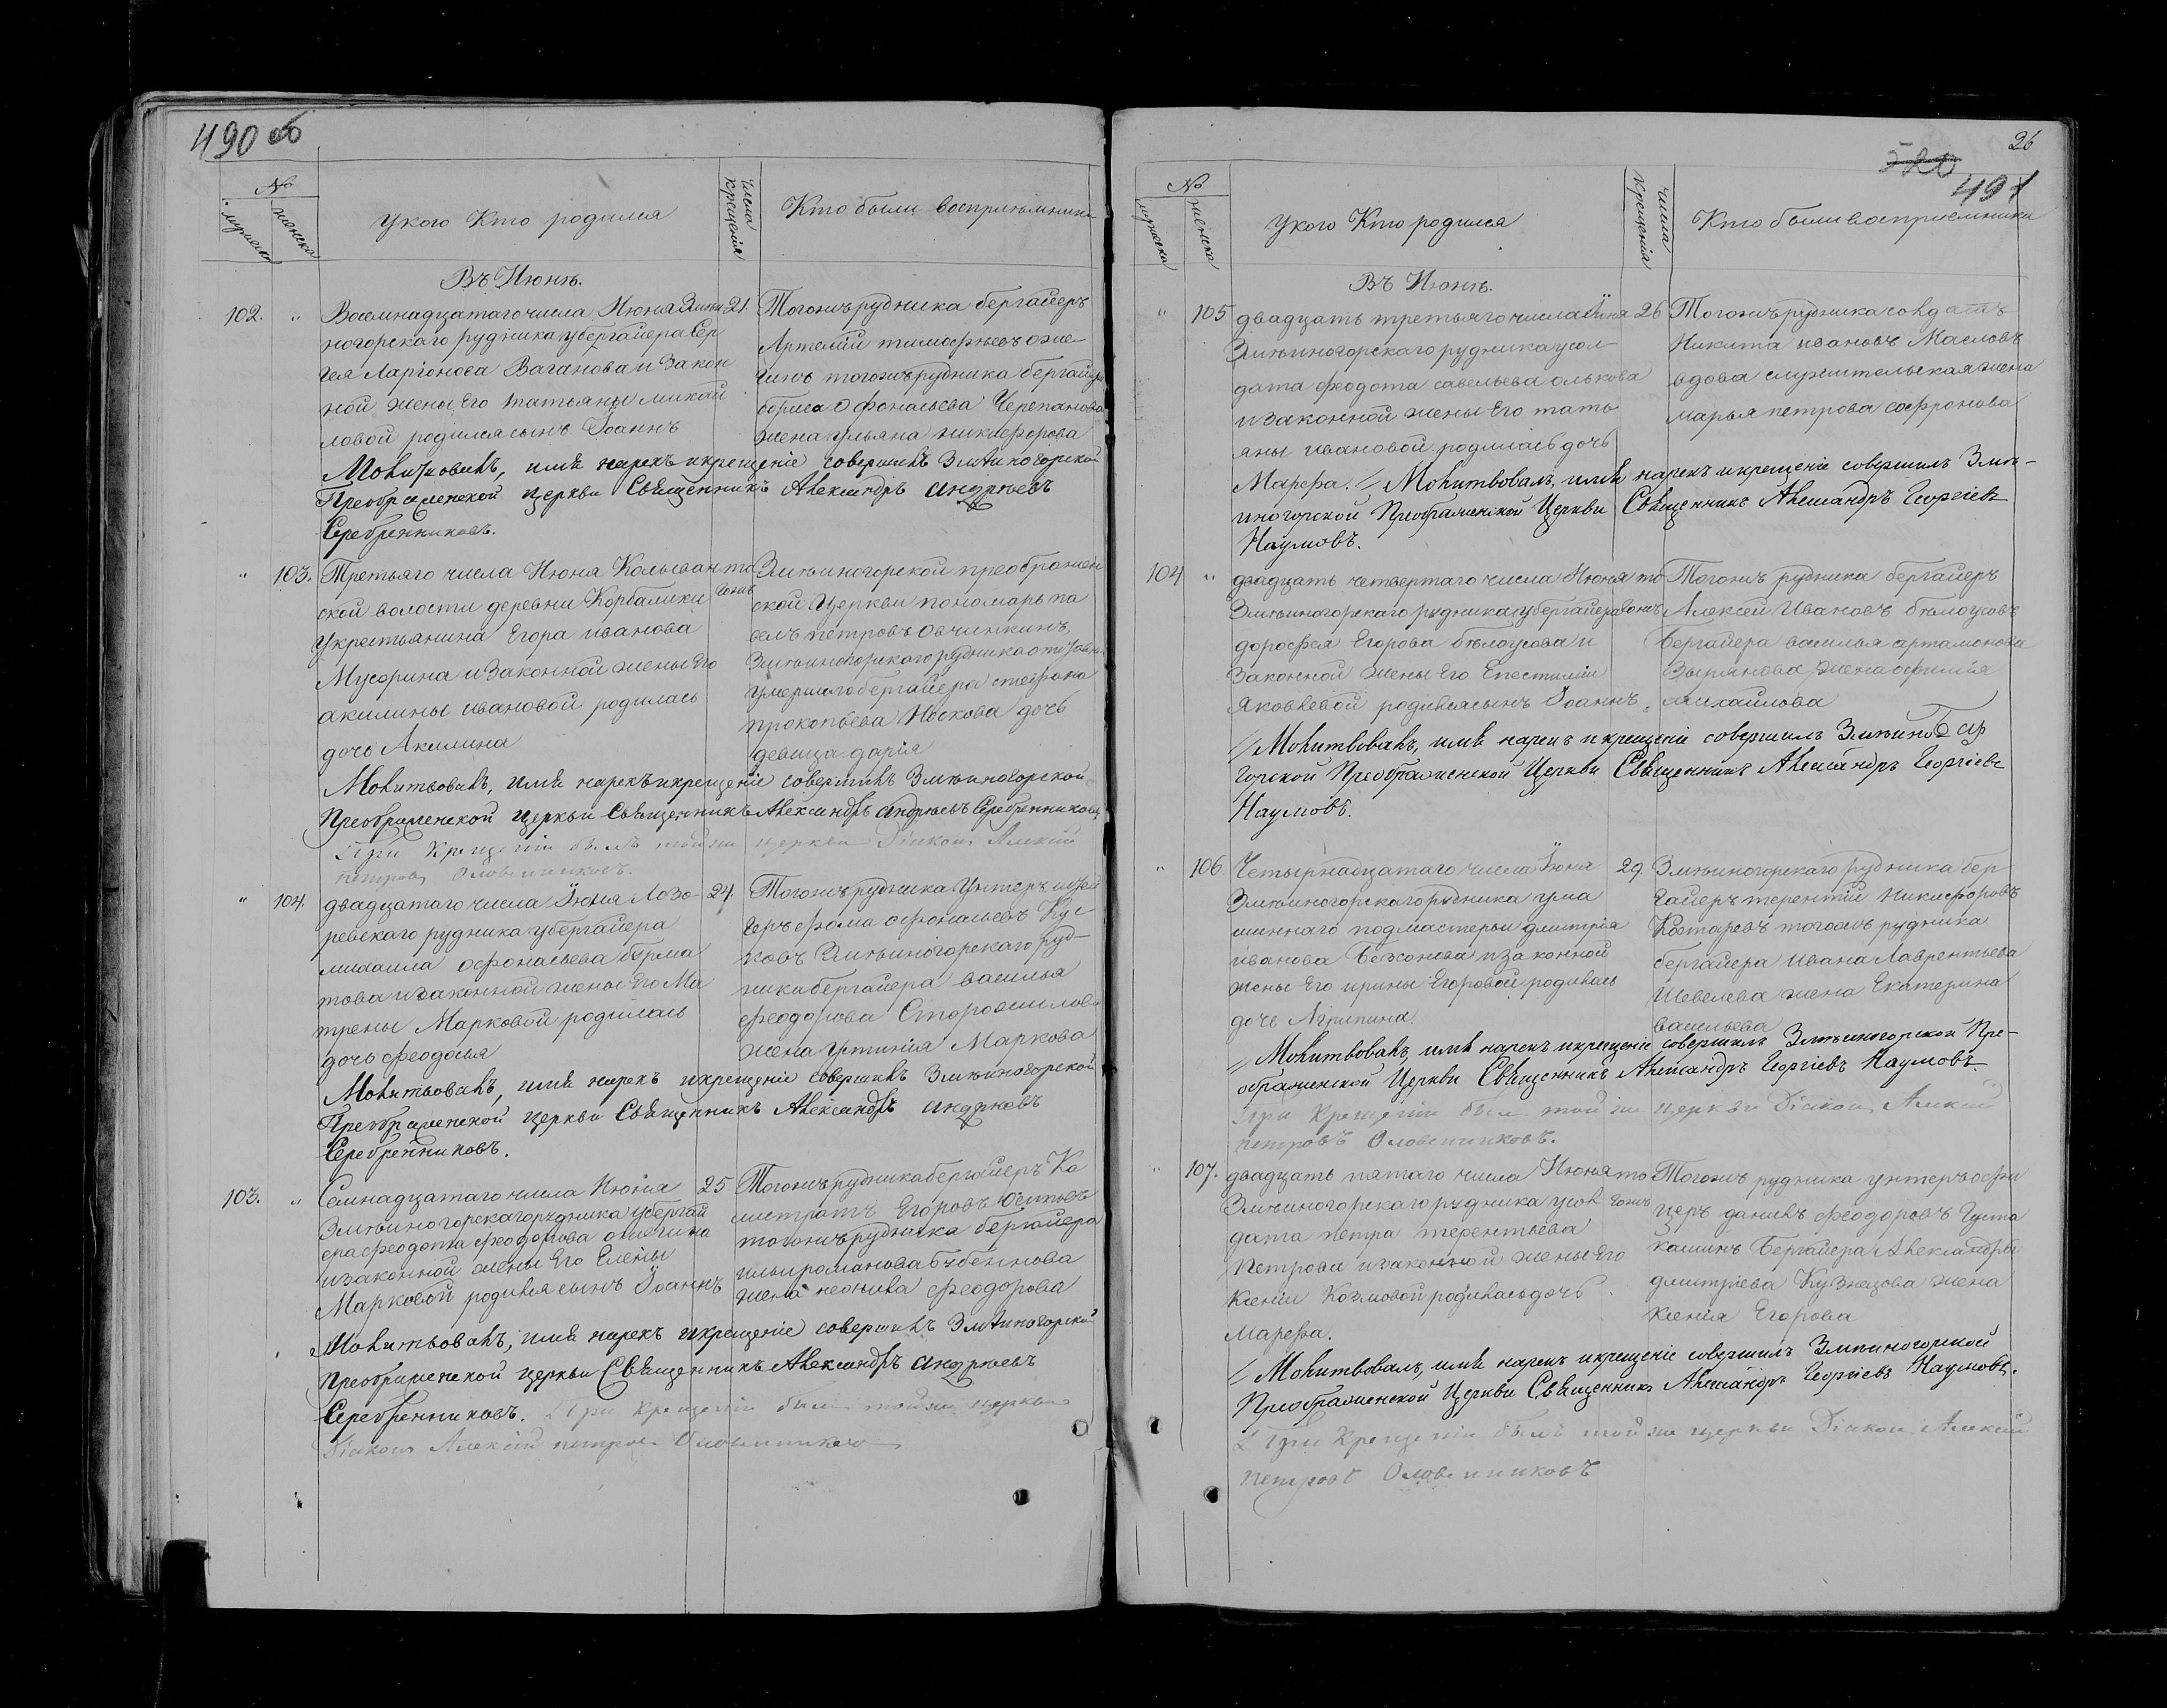 490 об
№
мужеска
женска
У кого Кто родился
Числа крещенія
Кто были восприемники
Въ Июнѣ.
102.
"
Восемнадцатаго числа Июня Змѣи
ногорскаго рудника у бергайера Сер
гея Ларіонова Ваганова и закон
ной жены Его татьяны михай
ловой родился сынъ Іоаннъ
21.
Тогожъ рудника бергайеръ
Артемій тимофѣевъ
тогожъ рудника бергайера
бориса Офонасьева Черепанова
жена ульяна никифорова
Молитвовалъ, имя нарекъ и крещеніе совершилъ Змѣиногорской
Преображенской церкви Священникъ Александръ Андрѣевъ
Серебренниковъ.
"
103.
Третьяго числа Июня Колыван
ской волости деревни Корбалихи
у крестьянина Егора иванова
Мусорина и законной жены Его
акилины ивановой родилась
дочь Акилина
того
жъ
Змѣиногорской преображен
ской Церкви пономарь па
велъ петровъ Овчинкинъ,
Змѣиногорскаго рудника
умершаго бергайера стефана
прокопьева Носкова дочь
девица дарія
Молитвовалъ, имя нарекъ и крещеніе совершилъ Змѣиногорской
Преображенской церкви Священникъ Александръ Андрѣевъ Серебренниковъ
При Крещеніи былъ той же церкви Діаконъ Алексій
петровъ Оловенниковъ.
"
104.
двадцатаго числа Іюня Лазо-
ревскаго рудника у бергайера
михаила офонасьева бурма
това и законной жены Его Ма
трены Марковой родилась
дочь феодосья
24.
Тогожъ рудника Унтеръ шихтмей
геръ фома офонасьевъ Кус
ковъ Змѣиногорскаго руд-
ника бергайера василья
феодорова Сторожилова
жена устинія Маркова
Молитвовалъ, имя нарекъ и крещеніе совершилъ Змѣиногорской
Преображенской церкви Священникъ Александръ Андрѣевъ
Серебренниковъ.
103.
"
Семнадцатаго числа Июня
Змѣиногорскаго рудника у бергай
ера феодота феодорова
и законной жены Его Елены
Марковой родился сынъ Іоаннъ
25
Тогожъ рудника бергайеръ Ка
листратъ Егоровъ Осиповъ
тогожъ рудника бергайера
ильи романова бубеннова
жена неонила феодорова
Молитвовалъ, имя нарекъ и крещеніе совершилъ Змѣиногорской
Преображенской церкви Священникъ Александръ Андрѣевъ
Серебренниковъ. При крещеніи былъ той же церкви
Діаконъ Алексій петровъ Оловенниковъ
26
520
491
№
мужеска
женска
У кого Кто родился
Числа крещенія
Кто были восприемники
Въ Июнѣ.
"
105
двадцать третьяго числа Июня
Змѣиногорскаго рудника у сол-
дата феодота савельева олькова
и законной жены Его тать
яны ивановой родилась дочь
Марфа.
26
Тогожъ рудника солдатъ
Никита ивановъ Масловъ
вдова служительская жена
марья петрова софронова
Молитвовалъ, имя нарекъ и крещеніе совершилъ Змѣ-
иногорской Преображенской Церкви Священникъ Александръ Георгіевъ
Наумовъ.
104
"
двадцать четвертаго числа Июня
Змѣиногорскаго рудника у бергайера
дорофея Егорова бѣлоусова и
Законной жены Его Епестиміи
яковлевой родился сынъ Іоаннъ.
то
гожъ
Тогожъ рудника бергайеръ
Алексѣй Ивановъ бѣлоусовъ
Бергайера василья артамонова
Зырянова жена афимія
михайлова
Молитвовалъ, имя нарекъ и крещеніе совершилъ Змѣино
горской Преображенской Церкви Священникъ Александръ Георгіевъ
Наумовъ.
"
106.
Четырнадцатаго числа Июня
Змѣиногорскаго рудника у ма
шиннаго подмастерьи дмитрія
иванова Бежонова и законной
жены Его ирины Егоровой родилась
дочь Агрипина.
29.
Змѣиногорскаго рудника бер
гайеръ терентій Никифоровъ
Костаревъ тогожъ рудника
бергайера Ивана Лаврентьева
Шевелева жена Екатерина
васильева
Молитвовалъ, имя нарекъ и крещеніе совершилъ Змѣиногорской Пре-
ображенской Церкви Священникъ Александръ Георгіевъ Наумовъ
При Крещеніи былъ той же церкви Діаконъ Алексій
петровъ Оловенниковъ.
"
107.
двадцать пятаго числа Июня
Змѣиногорскаго рудника у сол
дата петра терентьева
петрова и законной жены Его
Ксеніи Козмовой родилась дочь
Марфа.
то
гожъ
Тогожъ рудника унтеръ офи
церъ данилъ феодоровъ Густо
кашинъ Бергайера Александры
дмитріева Кузнецова жена
Ксенія Егорова
Молитвовалъ, имя нарекъ и крещеніе совершилъ Змѣиногорской
Преображенской Церкви Священникъ Александръ Георгіевъ Наумовъ.
При Крещеніи былъ той же церкви Діаконъ Алексій
петровъ Оловенниковъ